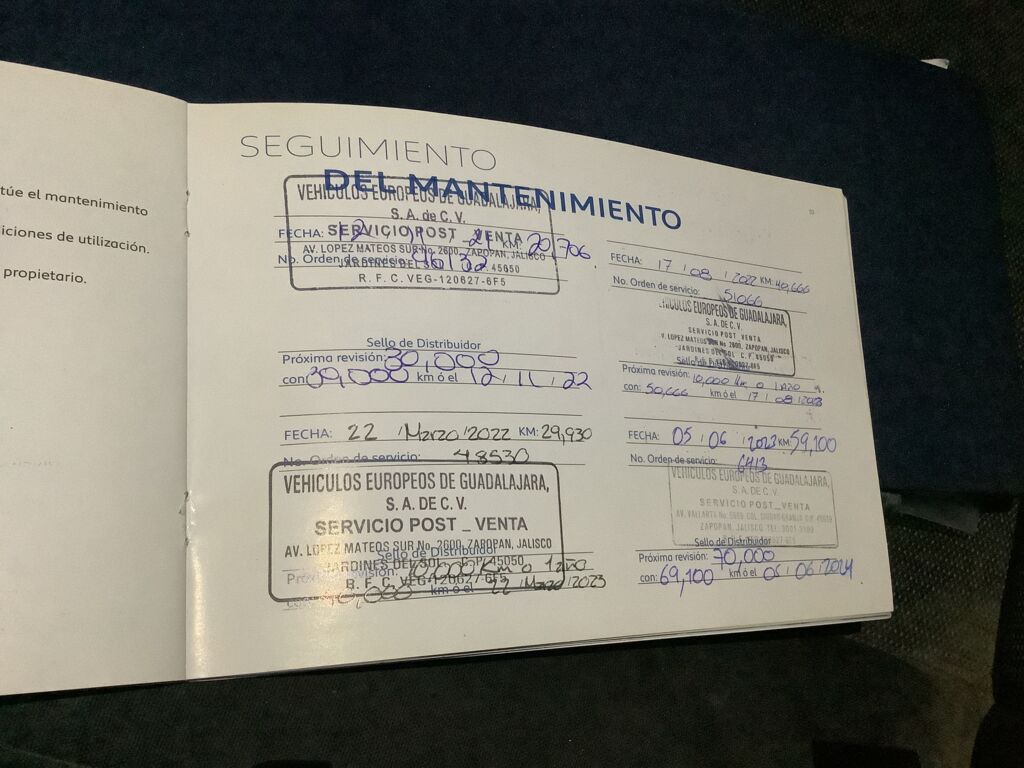 túe el mantenimiento
iciones de utilización.
propietario.
SEGUIMIENTO
DEL MANTENIMIENTO
VEHICULOS EUROPEOS DE GUADALAJARA,
S.A. de C.V.
FECHA: 12 21 KM: 20,706
SERVICIO POST _ VENTA
AV. LOPEZ MATEOS SUR No. 2600, ZAPOPAN, JALISCO
No. Orden de servicio: 46132
JARDINES DEL SOL 45050
R. F. C. VEG-120627-6F5
Sello de Distribuidor
Próxima revisión: 30,000
con: 39,000 km ó el 12 / 11 / 22
FECHA: 22 / Marzo / 2022 KM: 29,930
No. Orden de servicio: 48530
VEHICULOS EUROPEOS DE GUADALAJARA,
S.A. DE C.V.
SERVICIO POST _ VENTA
AV. LOPEZ MATEOS SUR No. 2600, ZAPOPAN, JALISCO
Sello de Distribuidor
JARDINES DEL SOL C.P. 45050
Próxima revisión: 10,000 Km o 1 año
R. F. C. VEG-120627-6F5
con: 40,000 km ó el 22 / Marzo / 2023
FECHA: 17 / 08 / 2022 KM: 40,666
No. Orden de servicio: 51066
VEHICULOS EUROPEOS DE GUADALAJARA,
S.A. DE C.V.
SERVICIO POST VENTA
V. LOPEZ MATEOS SUR No. 2600, ZAPOPAN, JALISCO
JARDINES DEL SOL C.P. 45050
Próxima revisión: 10,000 Km o 1 AÑO
con: 50,666 km ó el 17 / 08 / 2023
FECHA: 05 / 06 / 2023 KM: 59,100
No. Orden de servicio: 6413
VEHICULOS EUROPEOS DE GUADALAJARA,
S.A. DE C.V.
SERVICIO POST_VENTA
ZAPOPAN, JALISCO TEL.
Sello de Distribuidor
Próxima revisión: 70,000
con: 69,100 km ó el 06 / 06 / 2024